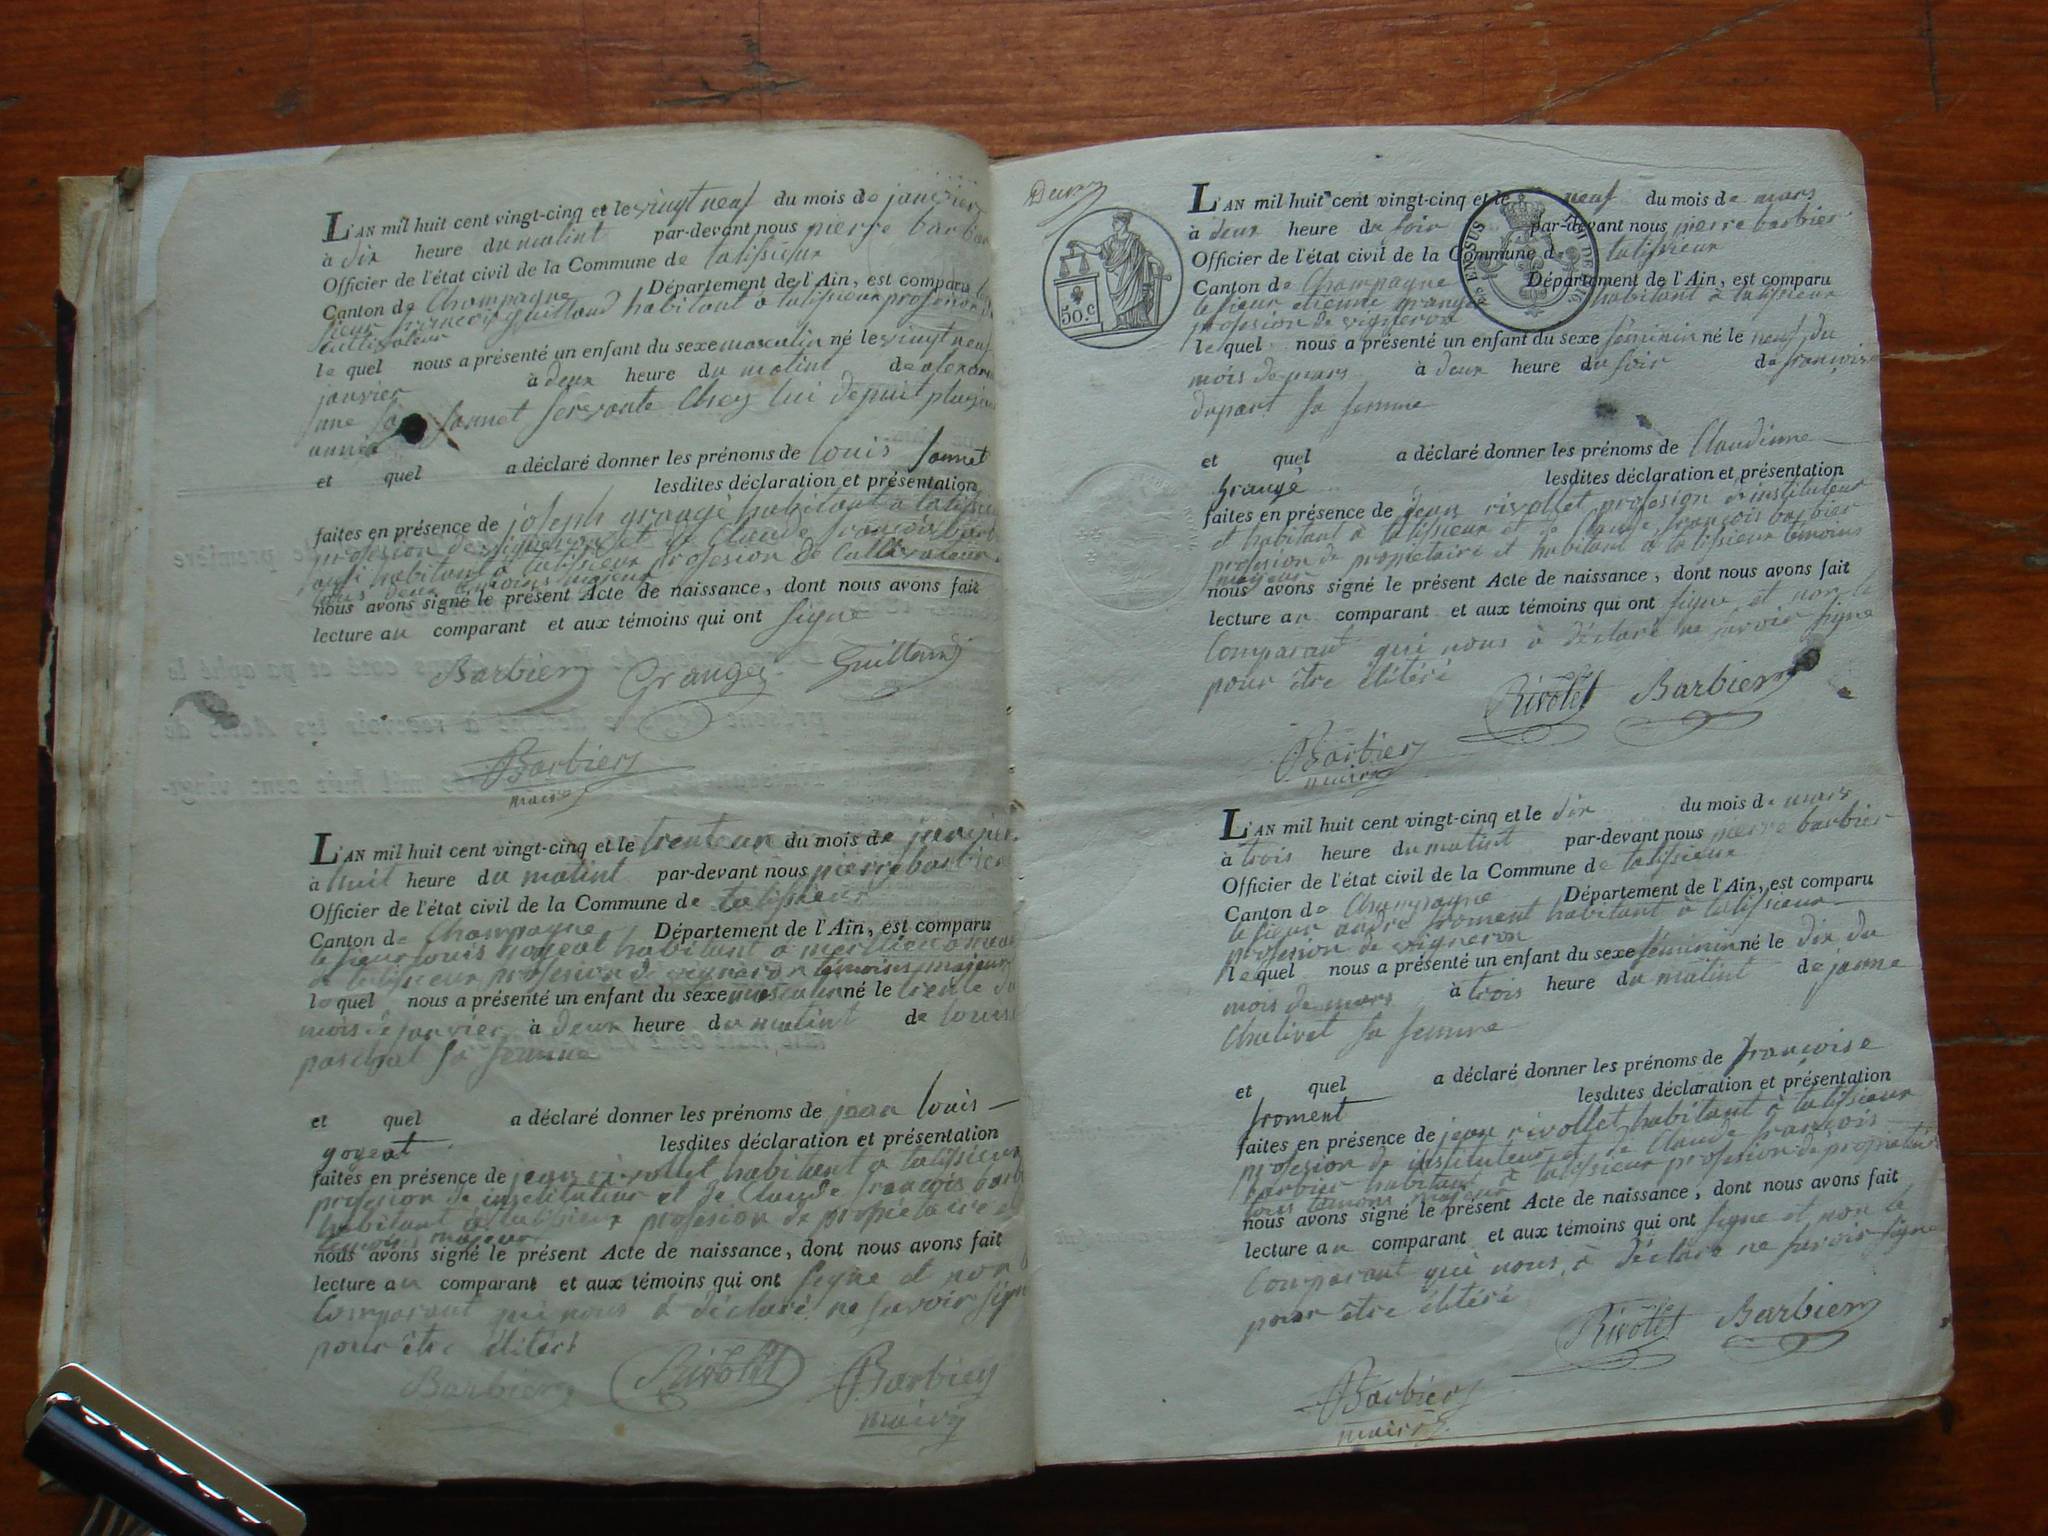 L'AN mil huit cent vingt-cinq et le vingt neuf du mois de janvier
à dix heure du matint par-devant nous pierre barbier
Officier de l'état civil de la Commune de talissieux
Canton de Champagne Département de l'Ain, est comparu
sieur guilland habitant à talissieux profesion
cultivateur
le quel nous a présenté un enfant du sexe masculin né le vingt neuf
janvier à deux heure du matint de
jonnet servante Chez lui depuit plusieurs
année
et quel a déclaré donner les prénoms de louis jonnet
lesdites déclaration et présentation
faites en présence de joseph grangé habitant à talissieux
profesion de vigneron et de Claude françois barbier
ausi habitant à talissieux profesion de Cultivateur
tous deux témoins majeur
nous avons signé le présent Acte de naissance, dont nous avons fait
lecture au comparant et aux témoins qui ont signé
Barbier Grangez Guilland
Barbier
maire
L'AN mil huit cent vingt-cinq et le trente un du mois de janvier
à huit heure du matint par-devant nous pierre barbier
Officier de l'état civil de la Commune de talissieux
Canton de Champagne Département de l'Ain, est comparu
le sieur louis goyeat habitant à
de talissieux profesion de vigneron témoins majeur
le quel nous a présenté un enfant du sexe masculin né le trente du
mois de janvier à deux heure du matint de louise
paschal sa femme
et quel a déclaré donner les prénoms de jean louis
goyeat lesdites déclaration et présentation
faites en présence de jean rivollet habitant à talissieux
profesion de instituteur et de Claude françois barbier
habitant à talissieux profesion de propiétaire
témoins majeur
nous avons signé le présent Acte de naissance, dont nous avons fait
lecture au comparant et aux témoins qui ont signé et non le
Comparant qui nous à déclaré ne savoir signé
pour être élitéré
Barbier Rivolet Barbier
maire
50.c
L'AN mil huit cent vingt-cinq et le neuf du mois de mars
à deux heure du soir par-devant nous pierre barbier
Officier de l'état civil de la Commune de talissieux
Canton de Champagne Département de l'Ain, est comparu
le sieur etienne grangé habitant à talissieux
profesion de vigneron
le quel nous a présenté un enfant du sexe féminin né le neuf du
mois de mars à deux heure du soir de françoise
dupart sa femme
et quel a déclaré donner les prénoms de Claudinne
grangé lesdites déclaration et présentation
faites en présence de jean rivollet profesion de instituteur
et habitant à talissieux et de Claude françois barbier
profesion de propietaire et habitant à talissieux témoins
majeur
nous avons signé le présent Acte de naissance, dont nous avons fait
lecture au comparant et aux témoins qui ont signé et non le
Comparant qui nous à déclaré ne savoir signé
pour être élitéré
Rivolet Barbier
Barbier
maire
L'AN mil huit cent vingt-cinq et le dix du mois de mars
à trois heure du matint par-devant nous pierre barbier
Officier de l'état civil de la Commune de talissieux
Canton de Champagne Département de l'Ain, est comparu
le sieur andré froment habitant à talissieux
profesion de vigneron
le quel nous a présenté un enfant du sexe féminin né le dix du
mois de mars à trois heure du matint de janne
Chalivet sa femme
et quel a déclaré donner les prénoms de françoise
froment lesdites déclaration et présentation
faites en présence de jean rivollet habitant à talissieux
profesion de instituteur et de Claude françois
barbier habitant à talissieux profesion de propriétaire
tous témoins majeur
nous avons signé le présent Acte de naissance, dont nous avons fait
lecture au comparant et aux témoins qui ont signé et non le
Comparant qui nous à déclaré ne savoir signé
pour être élitéré
Rivolet Barbier
Barbier
maire